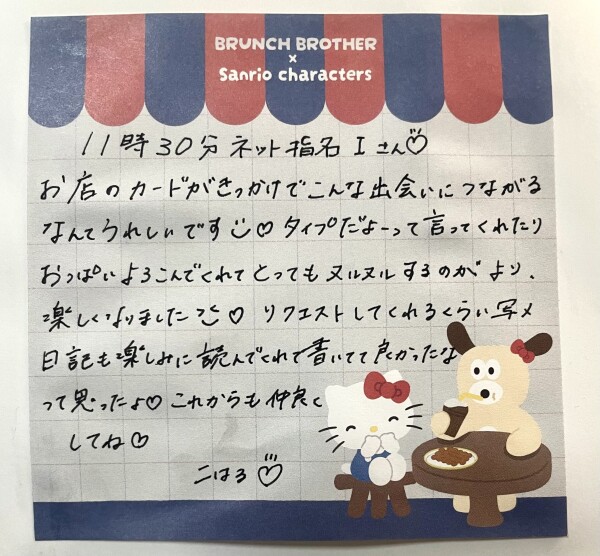 BRUNCH BROTHER
×
Sanrio characters
11時30分 ネット指名 Iさん♡
お店のカードがきっかけでこんな出会いにつながる
なんてうれしいです♡ タイプだよーって言ってくれたり
おっぱいよろこんでくれてとってもヌルヌルするのがより、
楽しくなりました♡ リクエストしてくれるくらい写メ
日記も楽しみに読んでくれて書いてて良かったな
って思ったよ♡ これからも仲良く
してね♡
こはる♡